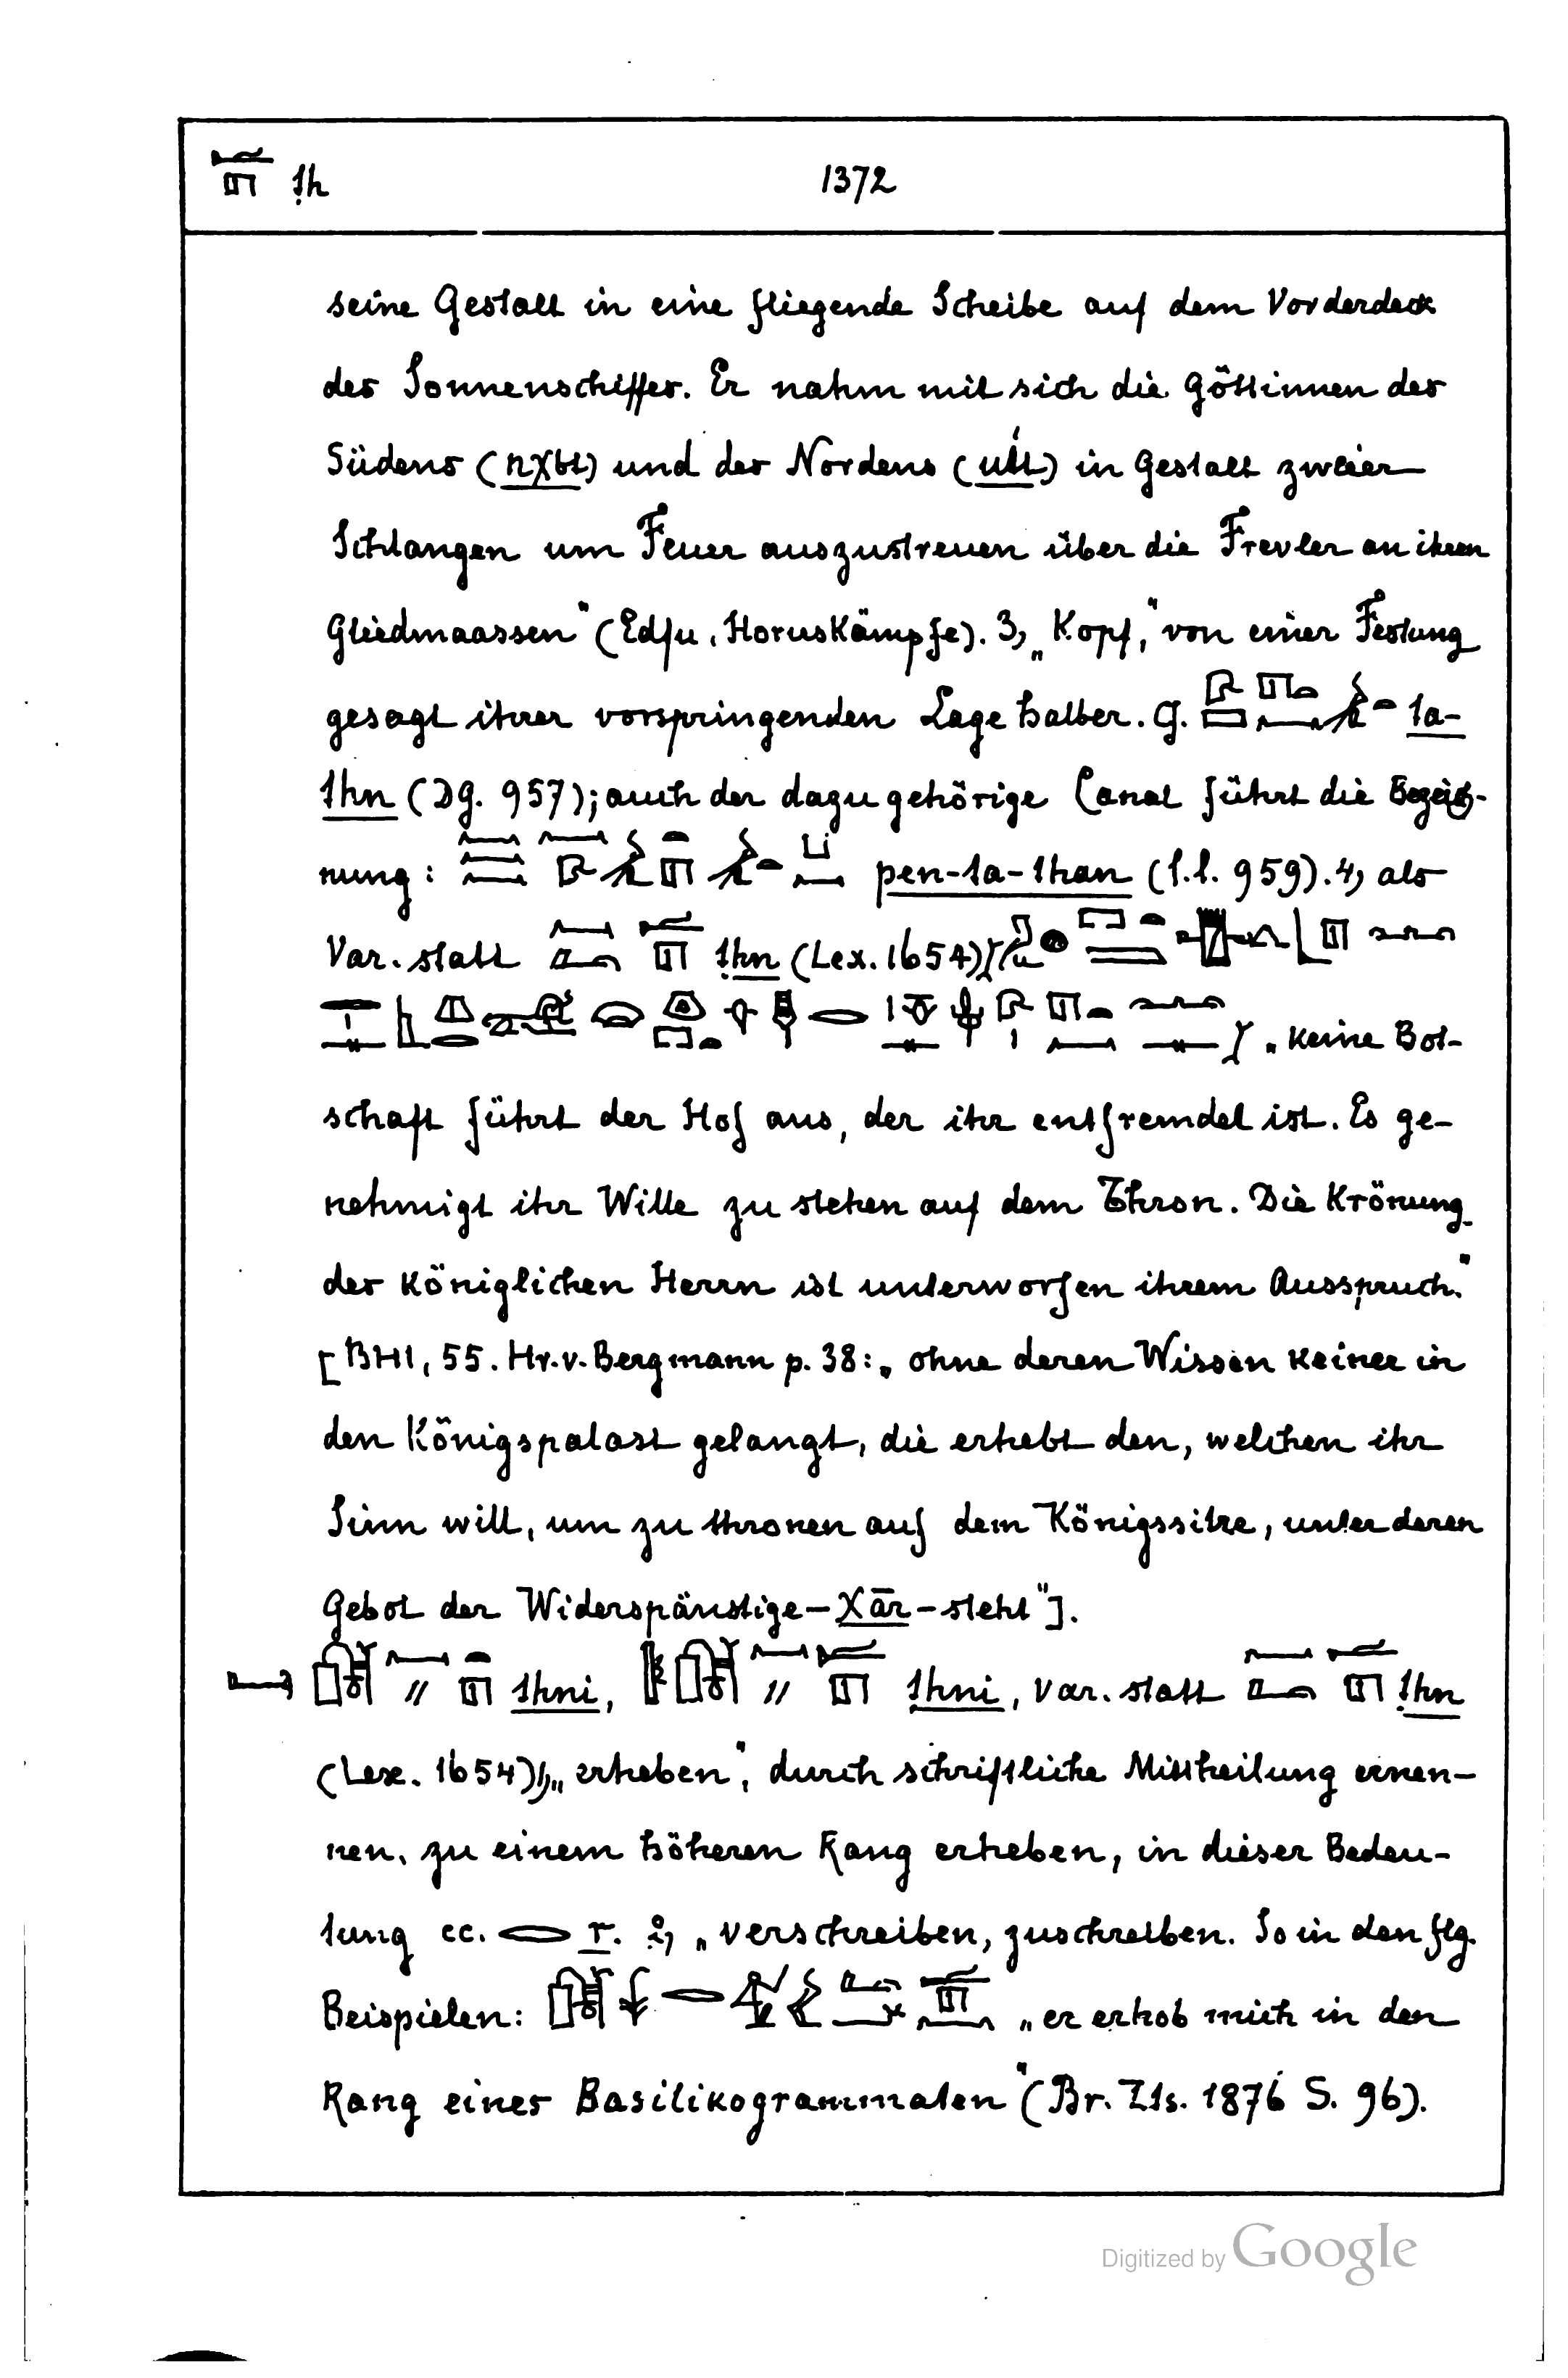 ṭh 1372
seine Gestalt in eine fliegende Scheibe auf dem Vorderdeck
des Sonnenschiffes. Er nahm mit sich die Göttinnen des
Südens (nχbt) und des Nordens (uťt) in Gestalt zweier
Schlangen um Feuer auszustreuen über die Frevler an ihren
Gliedmaassen" (Edfu, Horuskämpfe). 3, „Kopf," von einer Festung
gesagt ihrer vorspringenden Lage halber. G. ta-
thn (DG. 957); auch der dazu gehörige Canal führt die Bezeich-
nung: pen-ta-than (l.l. 959). 4, als
Var. statt ṭhn (Lex. 1654)
„keine Bot-
schaft führt der Hof aus, der ihr entfremdet ist. Es ge-
nehmigt ihr Wille zu stehen auf dem Thron. Die Krönung
des königlichen Herrn ist unterworfen ihrem Ausspruch."
[BHI, 55. Hr. v. Bergmann p. 38: „ohne deren Wissen keiner in
den Königspalast gelangt, die erhebt den, welchen ihr
Sinn will, um zu thronen auf dem Königssitze, unter deren
Gebot der Widerspänstige - χār - steht"].
thni, ṭhni, Var. statt ṭhn
(Lex. 1654) 1, „erheben", durch schriftliche Mittheilung ernen-
nen, zu einem höheren Rang erheben, in dieser Bedeu-
tung cc. r. 2, „verschreiben, zuschreiben. So in den flg.
Beispielen: „er erhob mich in den
Rang eines Basilikogrammaten" (Br. Zts. 1876 S. 96).
Digitized by Google